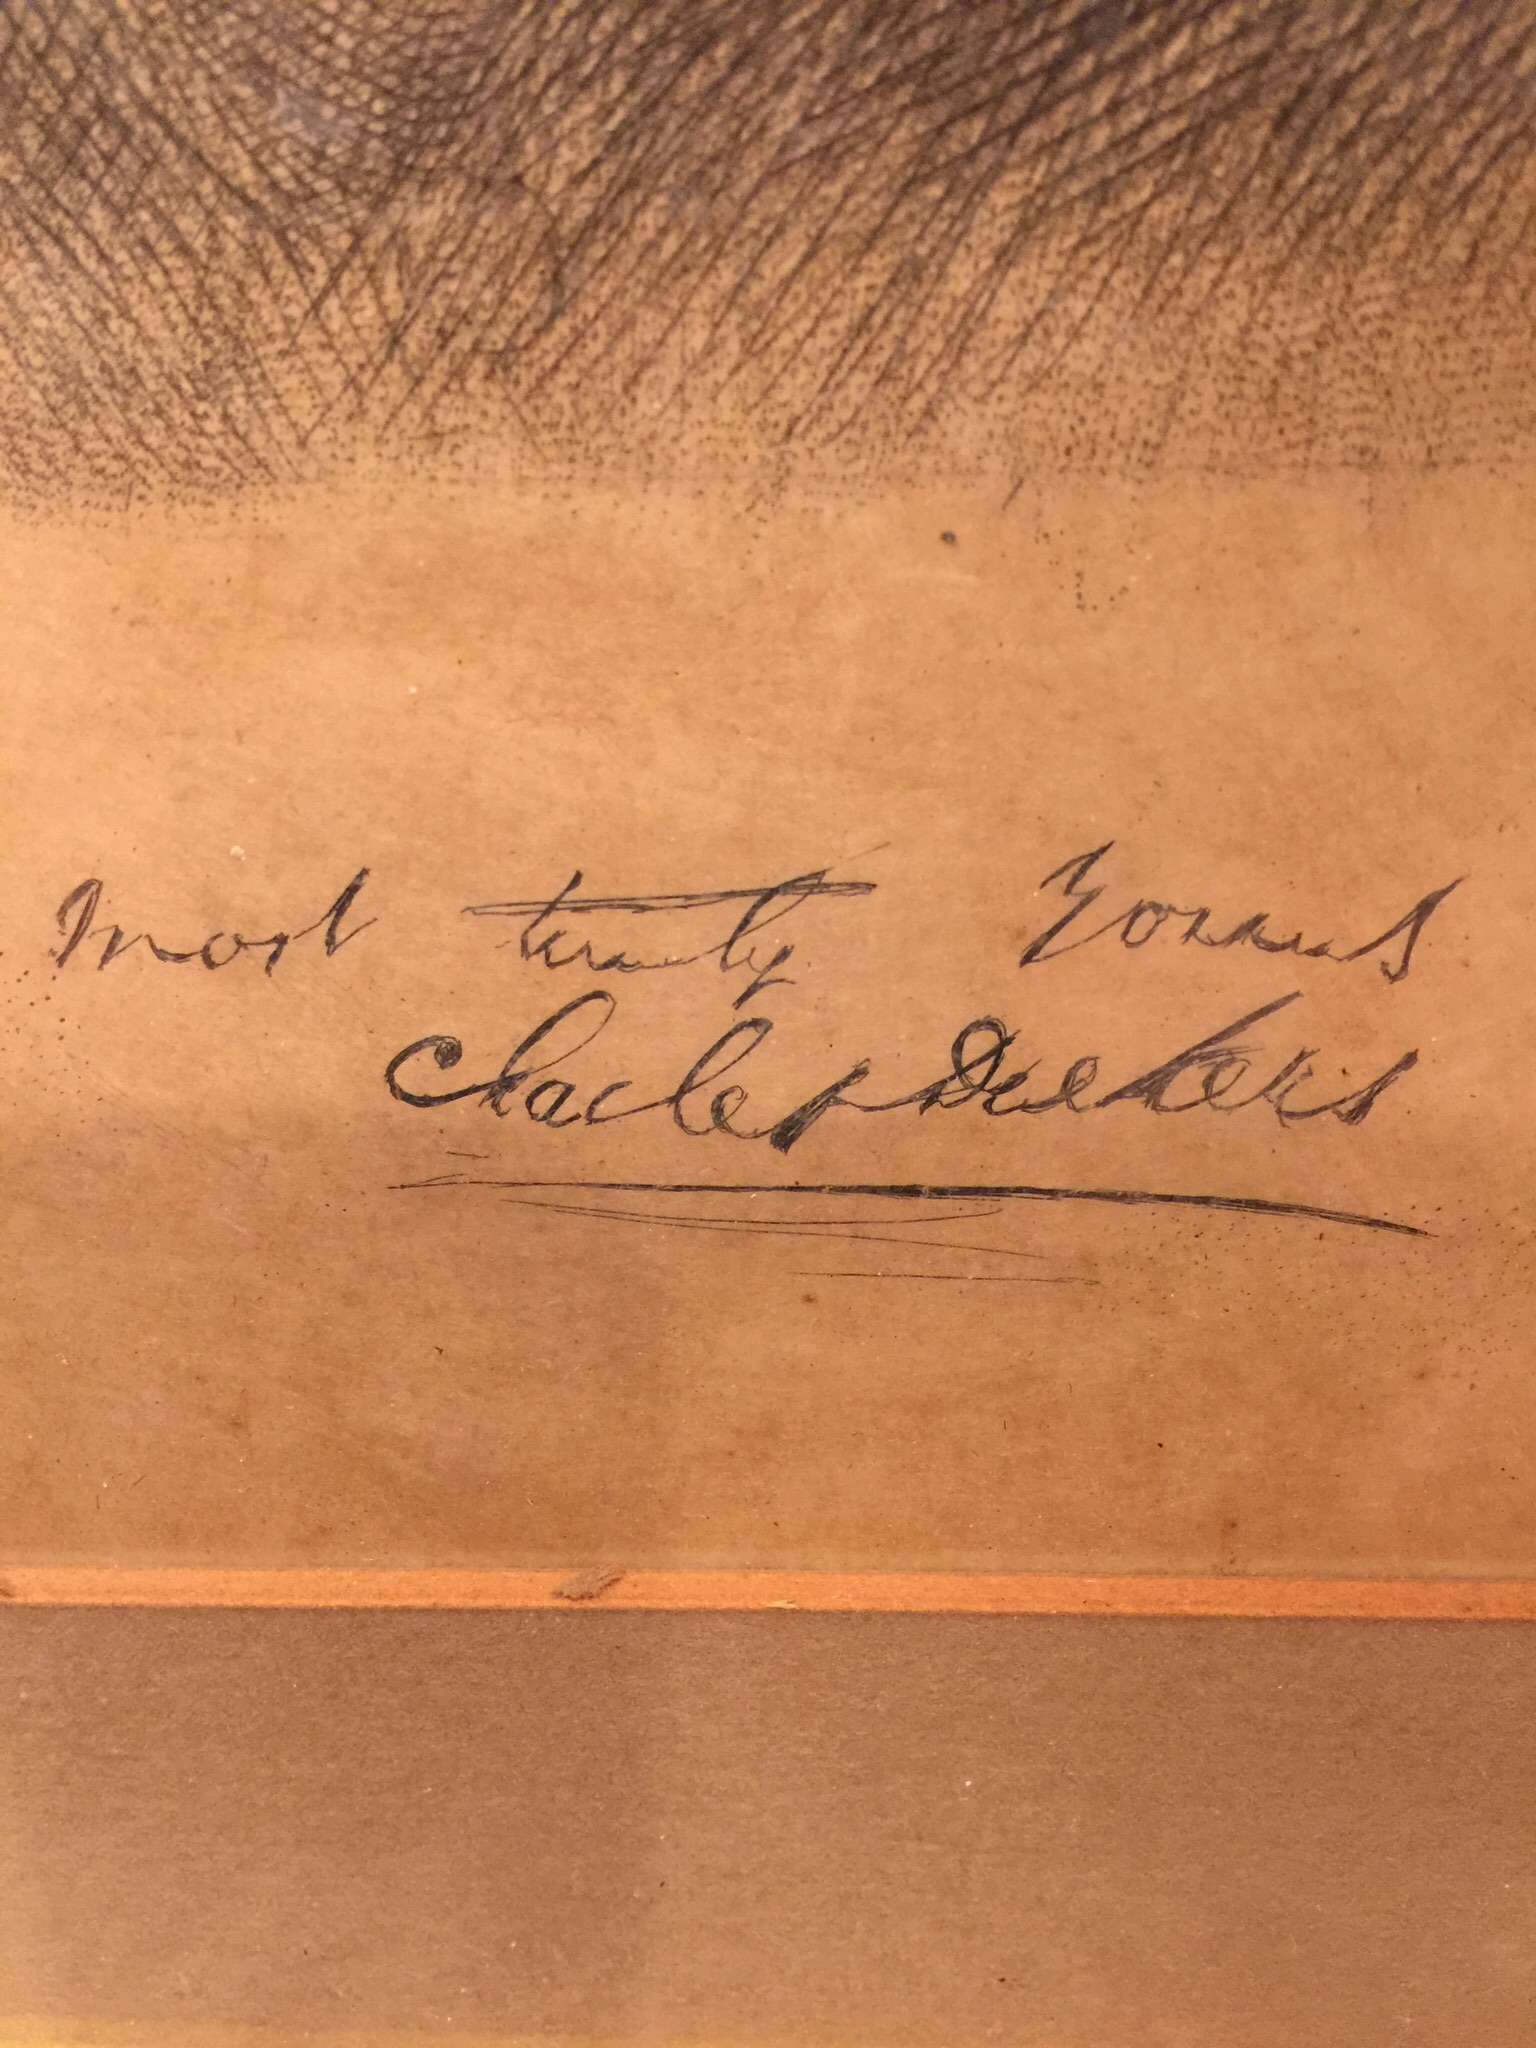 most truly Yours
Charles Dickens